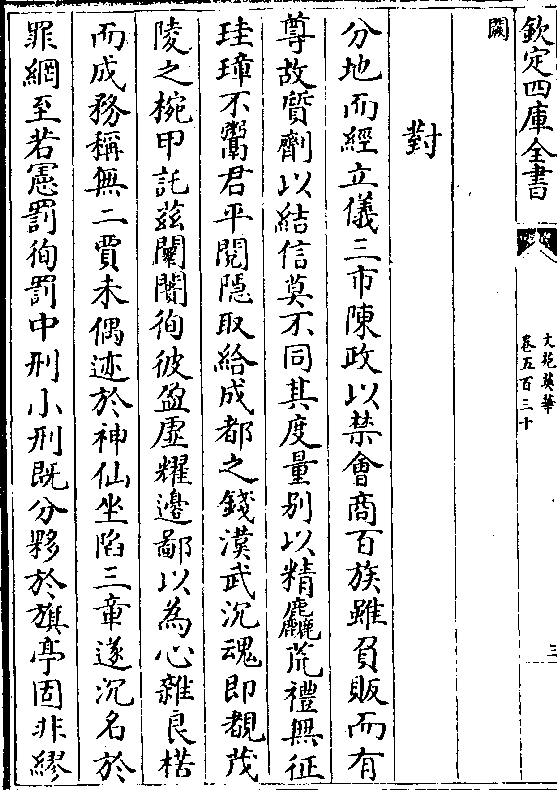 欽定四庫全書
文苑英華
卷五百三十
三
闕
對
分地而經立儀三市陳政以禁會商百族雖負販而有
尊故質劑以結信莫不同其度量别以精麤荒禮無征
珪璋不鬻君平閱隱取給成都之錢漢武沉魂即覩茂
陵之椀甲託兹闤闠徇彼盈虚耀邊鄙以為心雜良楛
而成務稱無二賈未偶迹於神仙坐陷三章遂沉名於
罪網至若憲罰徇罰中刑小刑既分夥於旗亭固非繆